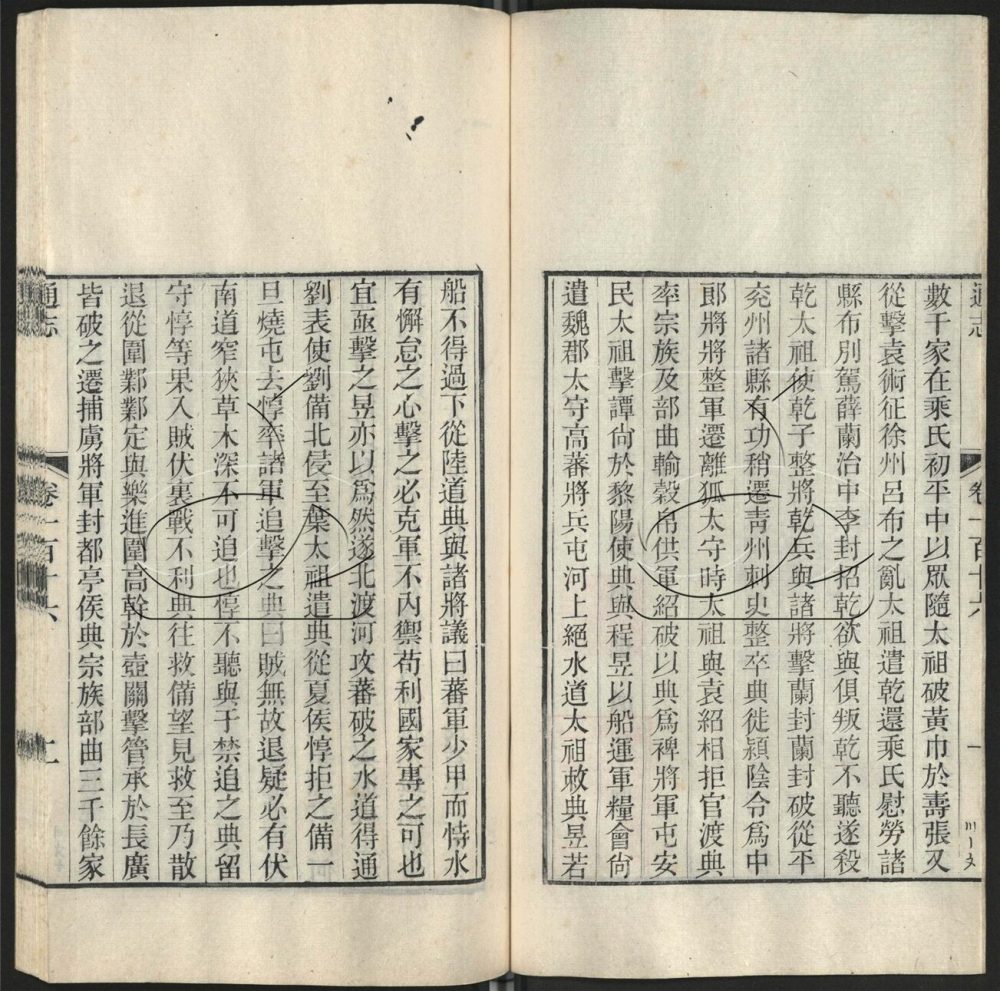 數千家在乘氏初平中以眾隨太祖破黃巾於壽張又
從擊袁術征徐州呂布之亂太祖遣乾還乘氏慰勞諸
縣布別駕薛蘭治中李封招乾欲與俱叛乾不聽遂殺
乾太祖使乾子整將乾兵與諸將擊蘭封蘭封破從平
兗州諸縣有功稍遷青州刺史整卒典徙潁陰令為中
郎將將整軍遷離狐太守時太祖與袁紹相拒官渡典
率宗族及部曲輸穀帛供軍紹破以典爲裨將軍屯安
民太祖擊譚尙於黎陽使典與程昱以船運軍糧會尙
遣魏郡太守高蕃將兵屯河上絕水道太祖敕典昱若
船不得過下從陸道典與諸將議曰蕃軍少甲而恃水
有懈怠之心擊之必克軍不內禦苟利國家專之可也
宜亟擊之昱亦以爲然遂北渡河攻蕃破之水道得通
劉表使劉備北侵至葉太祖遣典從夏侯惇拒之備一
旦燒屯去惇率諸軍追擊之典曰賊無故退疑必有伏
南道窄狹草木深不可追也惇不聽與于禁追之典留
守惇等果入賊伏裏戰不利典往救備望見救至乃散
退從圍鄴鄴定與樂進圍高幹於壺關擊管承於長廣
皆破之遷捕虜將軍封都亭侯典宗族部曲三千餘家
通志
卷一百十六